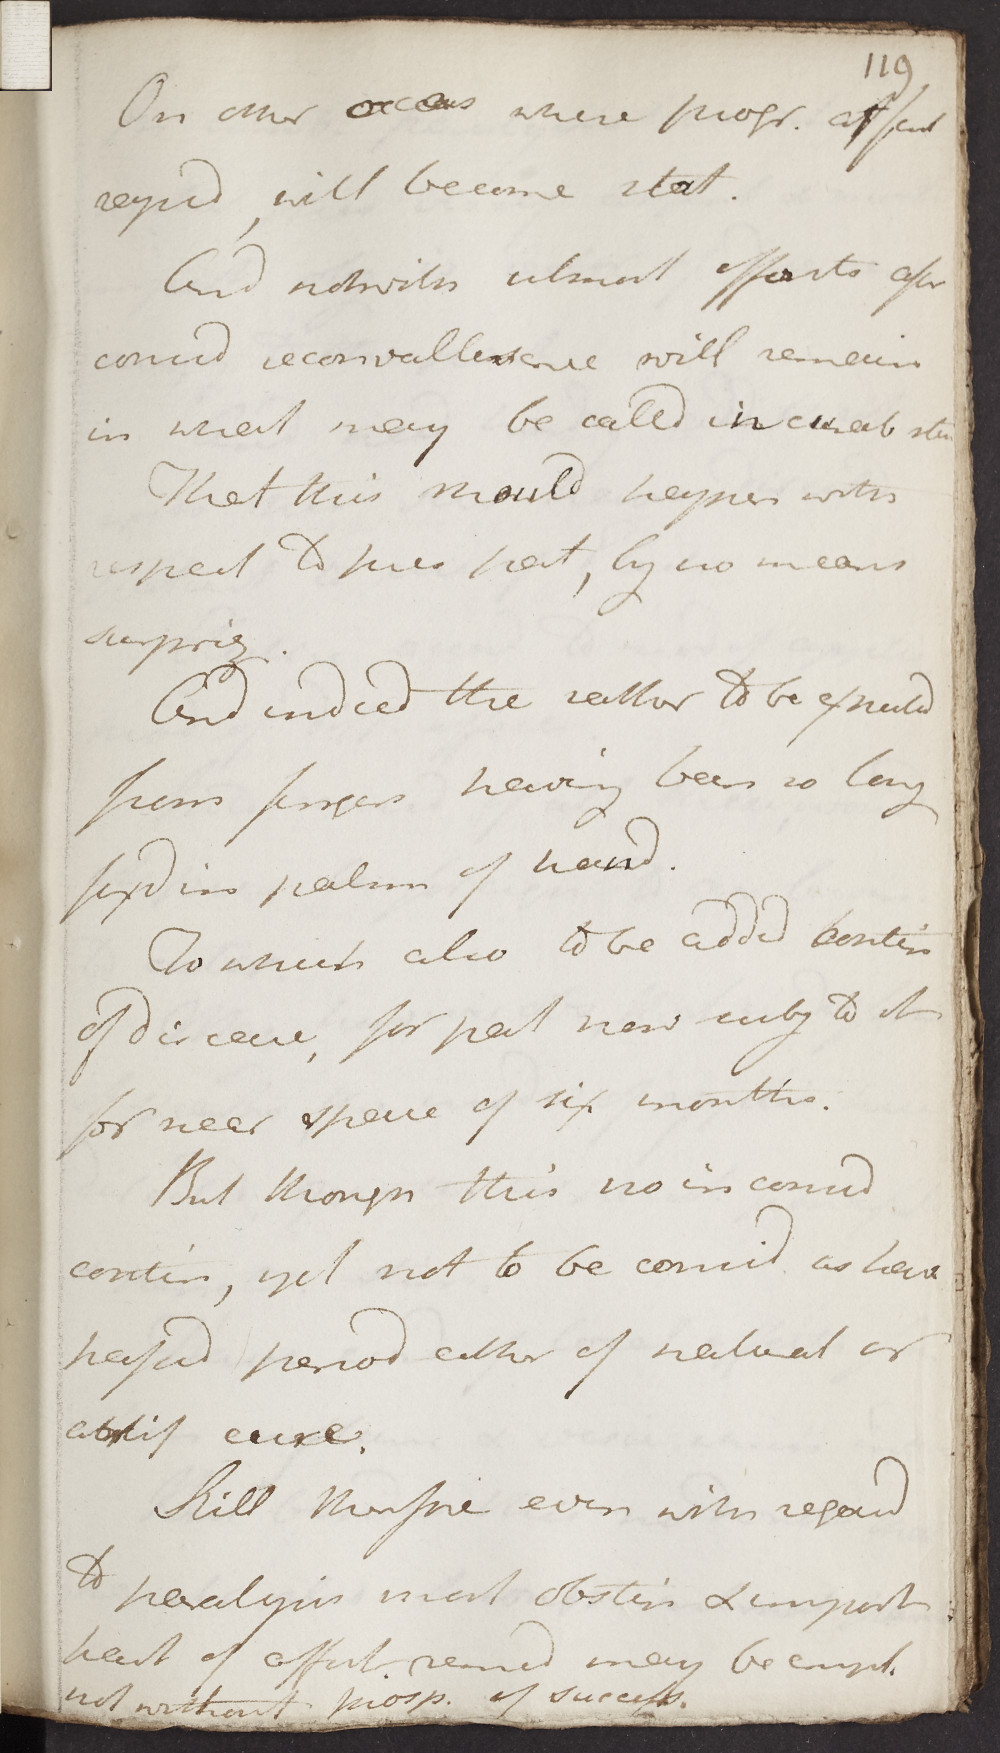 119
On other occas where progr. at first
rapid, will become stat.
And notwith utmost efforts after
consid reconvallescence will remain
in what may be called incurab state
That this should happen with
respect to pres pat, by no means
surprig.
And indeed the rather to be expected
from fingers having been so long
fixd in palm of hand.
To which also to be added contin
of disease, for pat now subj to it
for near space of six months.
But though this no inconsid
contin, yet not to be consid as have
passed period either of natural or
artif cure.
Still therfore even with regard
to paralysis most obstin & import
part of affect. remed may be empl.
not without prosp. of success.